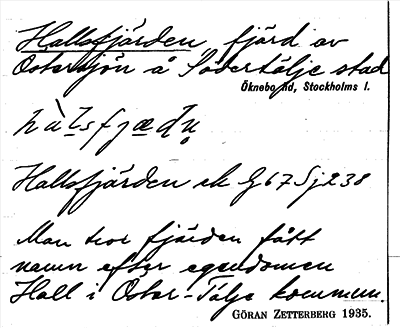 Hallsfjärden fjärd av
Östersjön å Södertälje stad
Öknebo hd, Stockholms l.
Hallsfjärden ek G67 Sj238
Man tror fjärden fått
namn efter egendomen
Hall i Öster-Tälje kommun.
GÖRAN ZETTERBERG 1935.